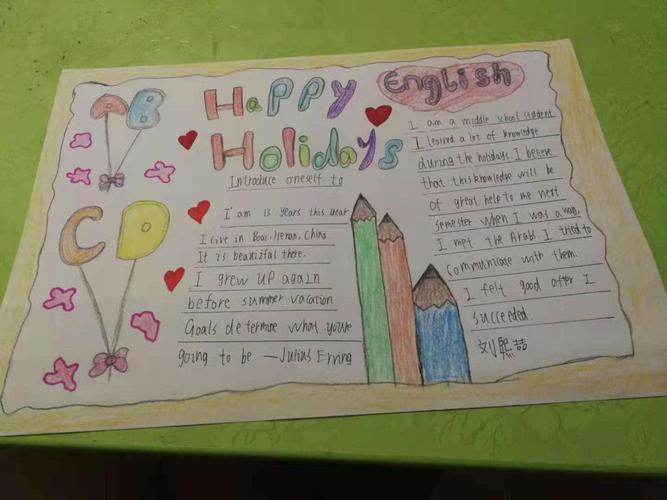 A B
Happy
Holidays
English
C D
Introduce oneself to
I'am 13 years this year
I live in Boai, Henan, China
It is beautiful there.
I grew up again
before summer vacation
Goals determine what you're
going to be. — Julius Erving
I am a middle school student
I learned a lot of knowledge
during the holidays. I believe
that this knowledge will be
of great help to me next
semester When I was a
I met the Arabs. I tried to
communicate with them.
I felt good after I
succeeded.
刘熙喆